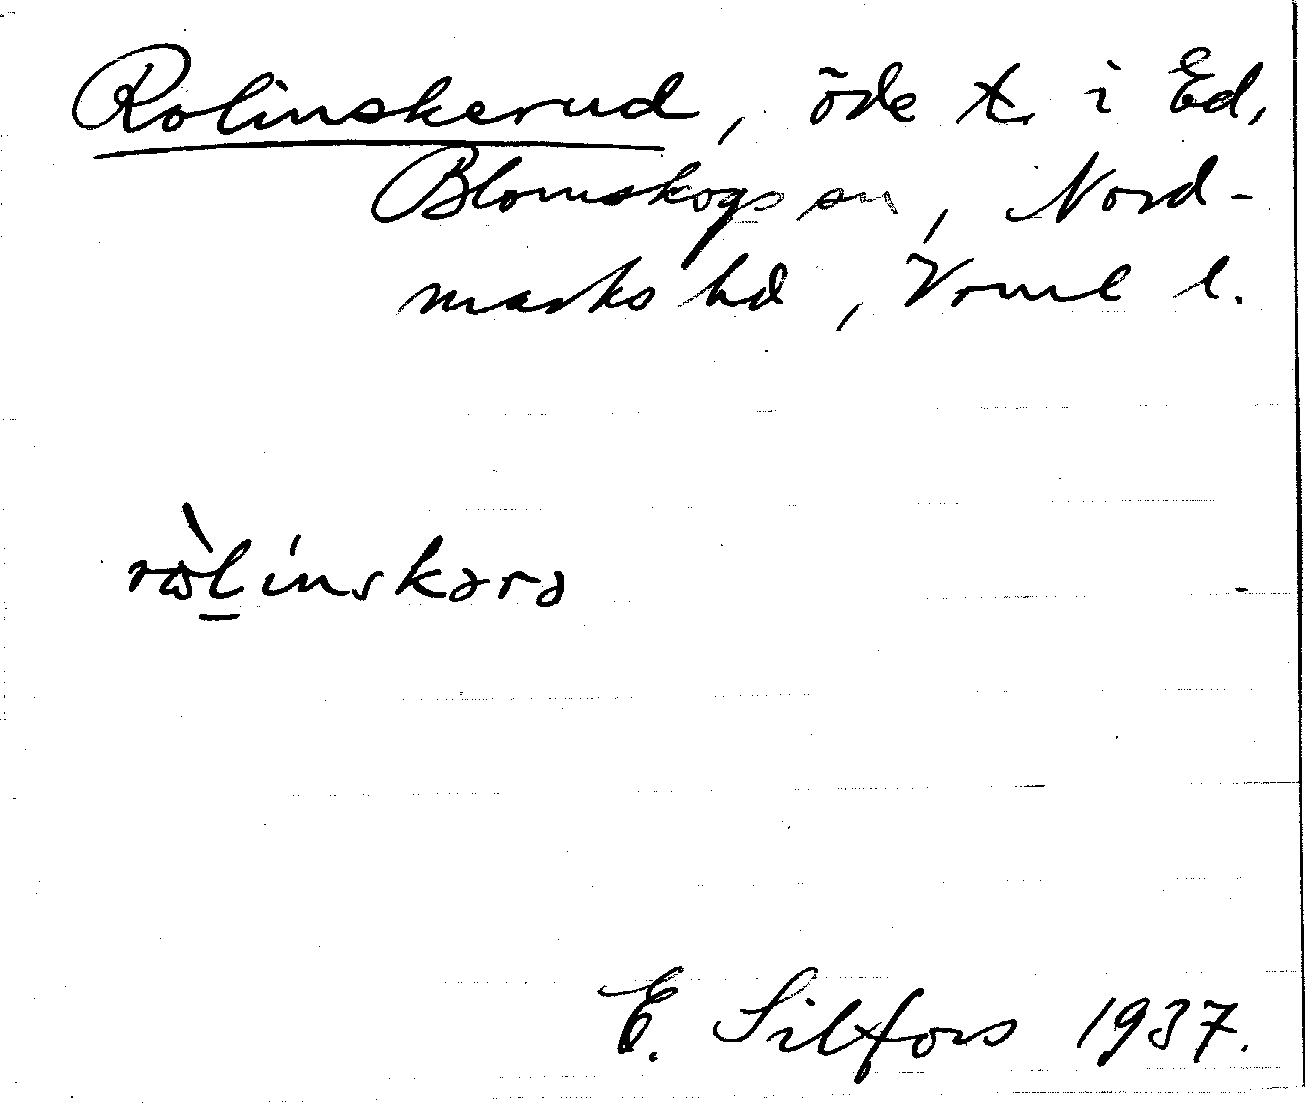 Rolinskerud, öde t. i Ed,
Blomskogs sn, Nord-
marks hd, Vrml l.
rωl̲ìnskərə
E. Silfors 1937.